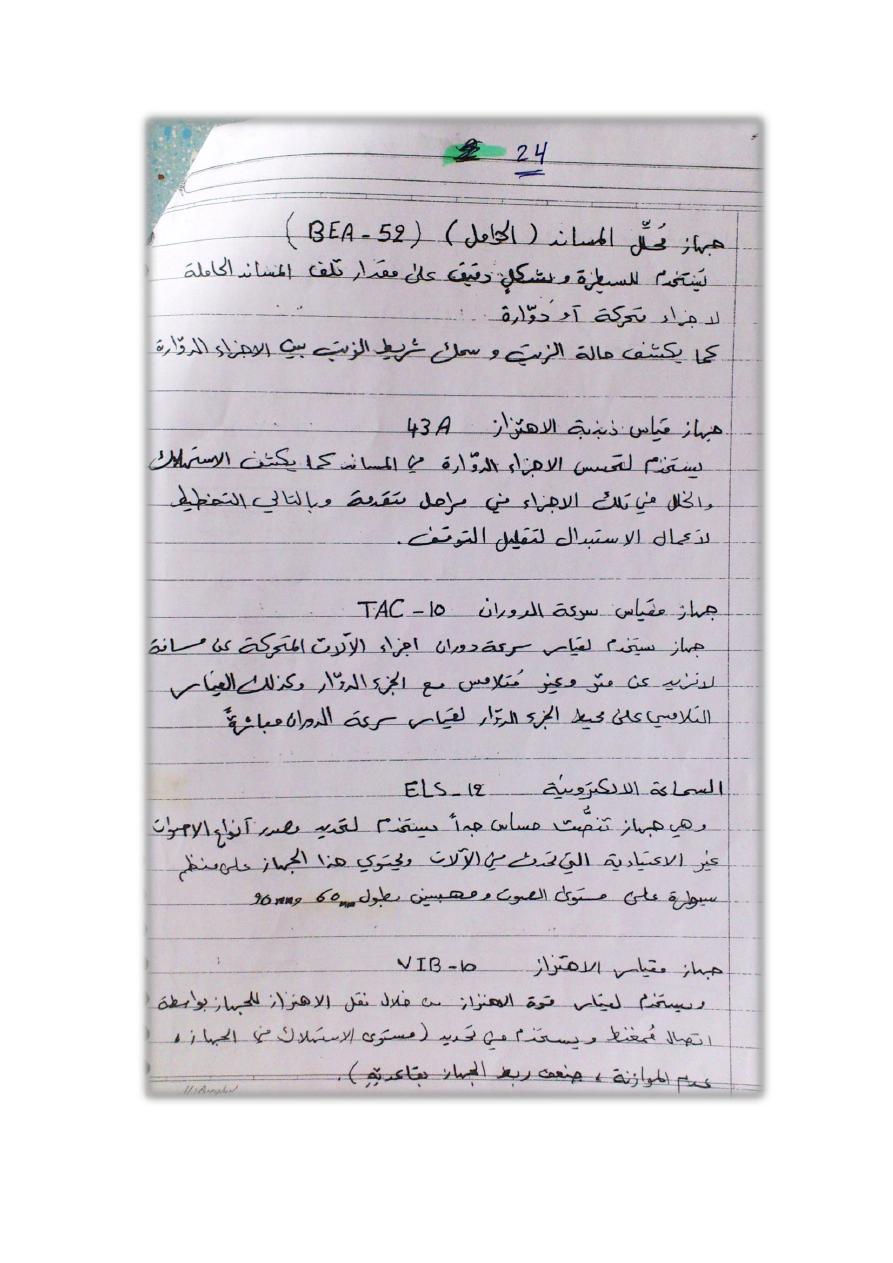 24
جهاز مُحلّل المساند (الحوامل) (BEA-52)
يُستخدم للسيطرة وبشكلٍ دقيق على مقدار تلف المساند الحاملة
لاجزاء متحركة أو دوّارة
كما يكشف حالة الزيت وسمك شريط الزيت بين الاجزاء الدوّارة
جهاز قياس ذبذبة الاهتزاز 43A
يستخدم لتحسس الاجزاء الدوّارة في المساند كما يكشف الاستهلاك
والخلل في تلك الاجزاء في مراحل متقدمة وبالتالي التخطيط
لأعمال الاستبدال لتقليل التوقف.
جهاز مقياس سرعة الدوران TAC-10
جهاز يستخدم لقياس سرعة دوران اجزاء الآلات المتحركة عن مسافة
لاتزيد عن متر وغير مُتلامس مع الجزء الدوّار وكذلك القياس
التلامسي على محيط الجزء الدوّار لقياس سرعة الدوران مباشرةً
السماعة الالكترونية ELS-12
وهي جهاز تنصُّت حساس جداً يستخدم لتحديد مصدر أنواع الاصوات
غير الاعتيادية التي تحدث في الآلات ويحتوي هذا الجهاز على منظم
سيطرة على مستوى الصوت و بطول 60mm و 90mm
جهاز مقياس الاهتزاز VIB-10
ويستخدم لقياس قوة الاهتزاز من خلال نقل الاهتزاز للجهاز بواسطة
اتصال مُمغنط ويستخدم في تحديد (مستوى الاستهلاك في الجهاز ،
عدم الموازنة ، ضعف ربط الجهاز بقاعدتِهِ).